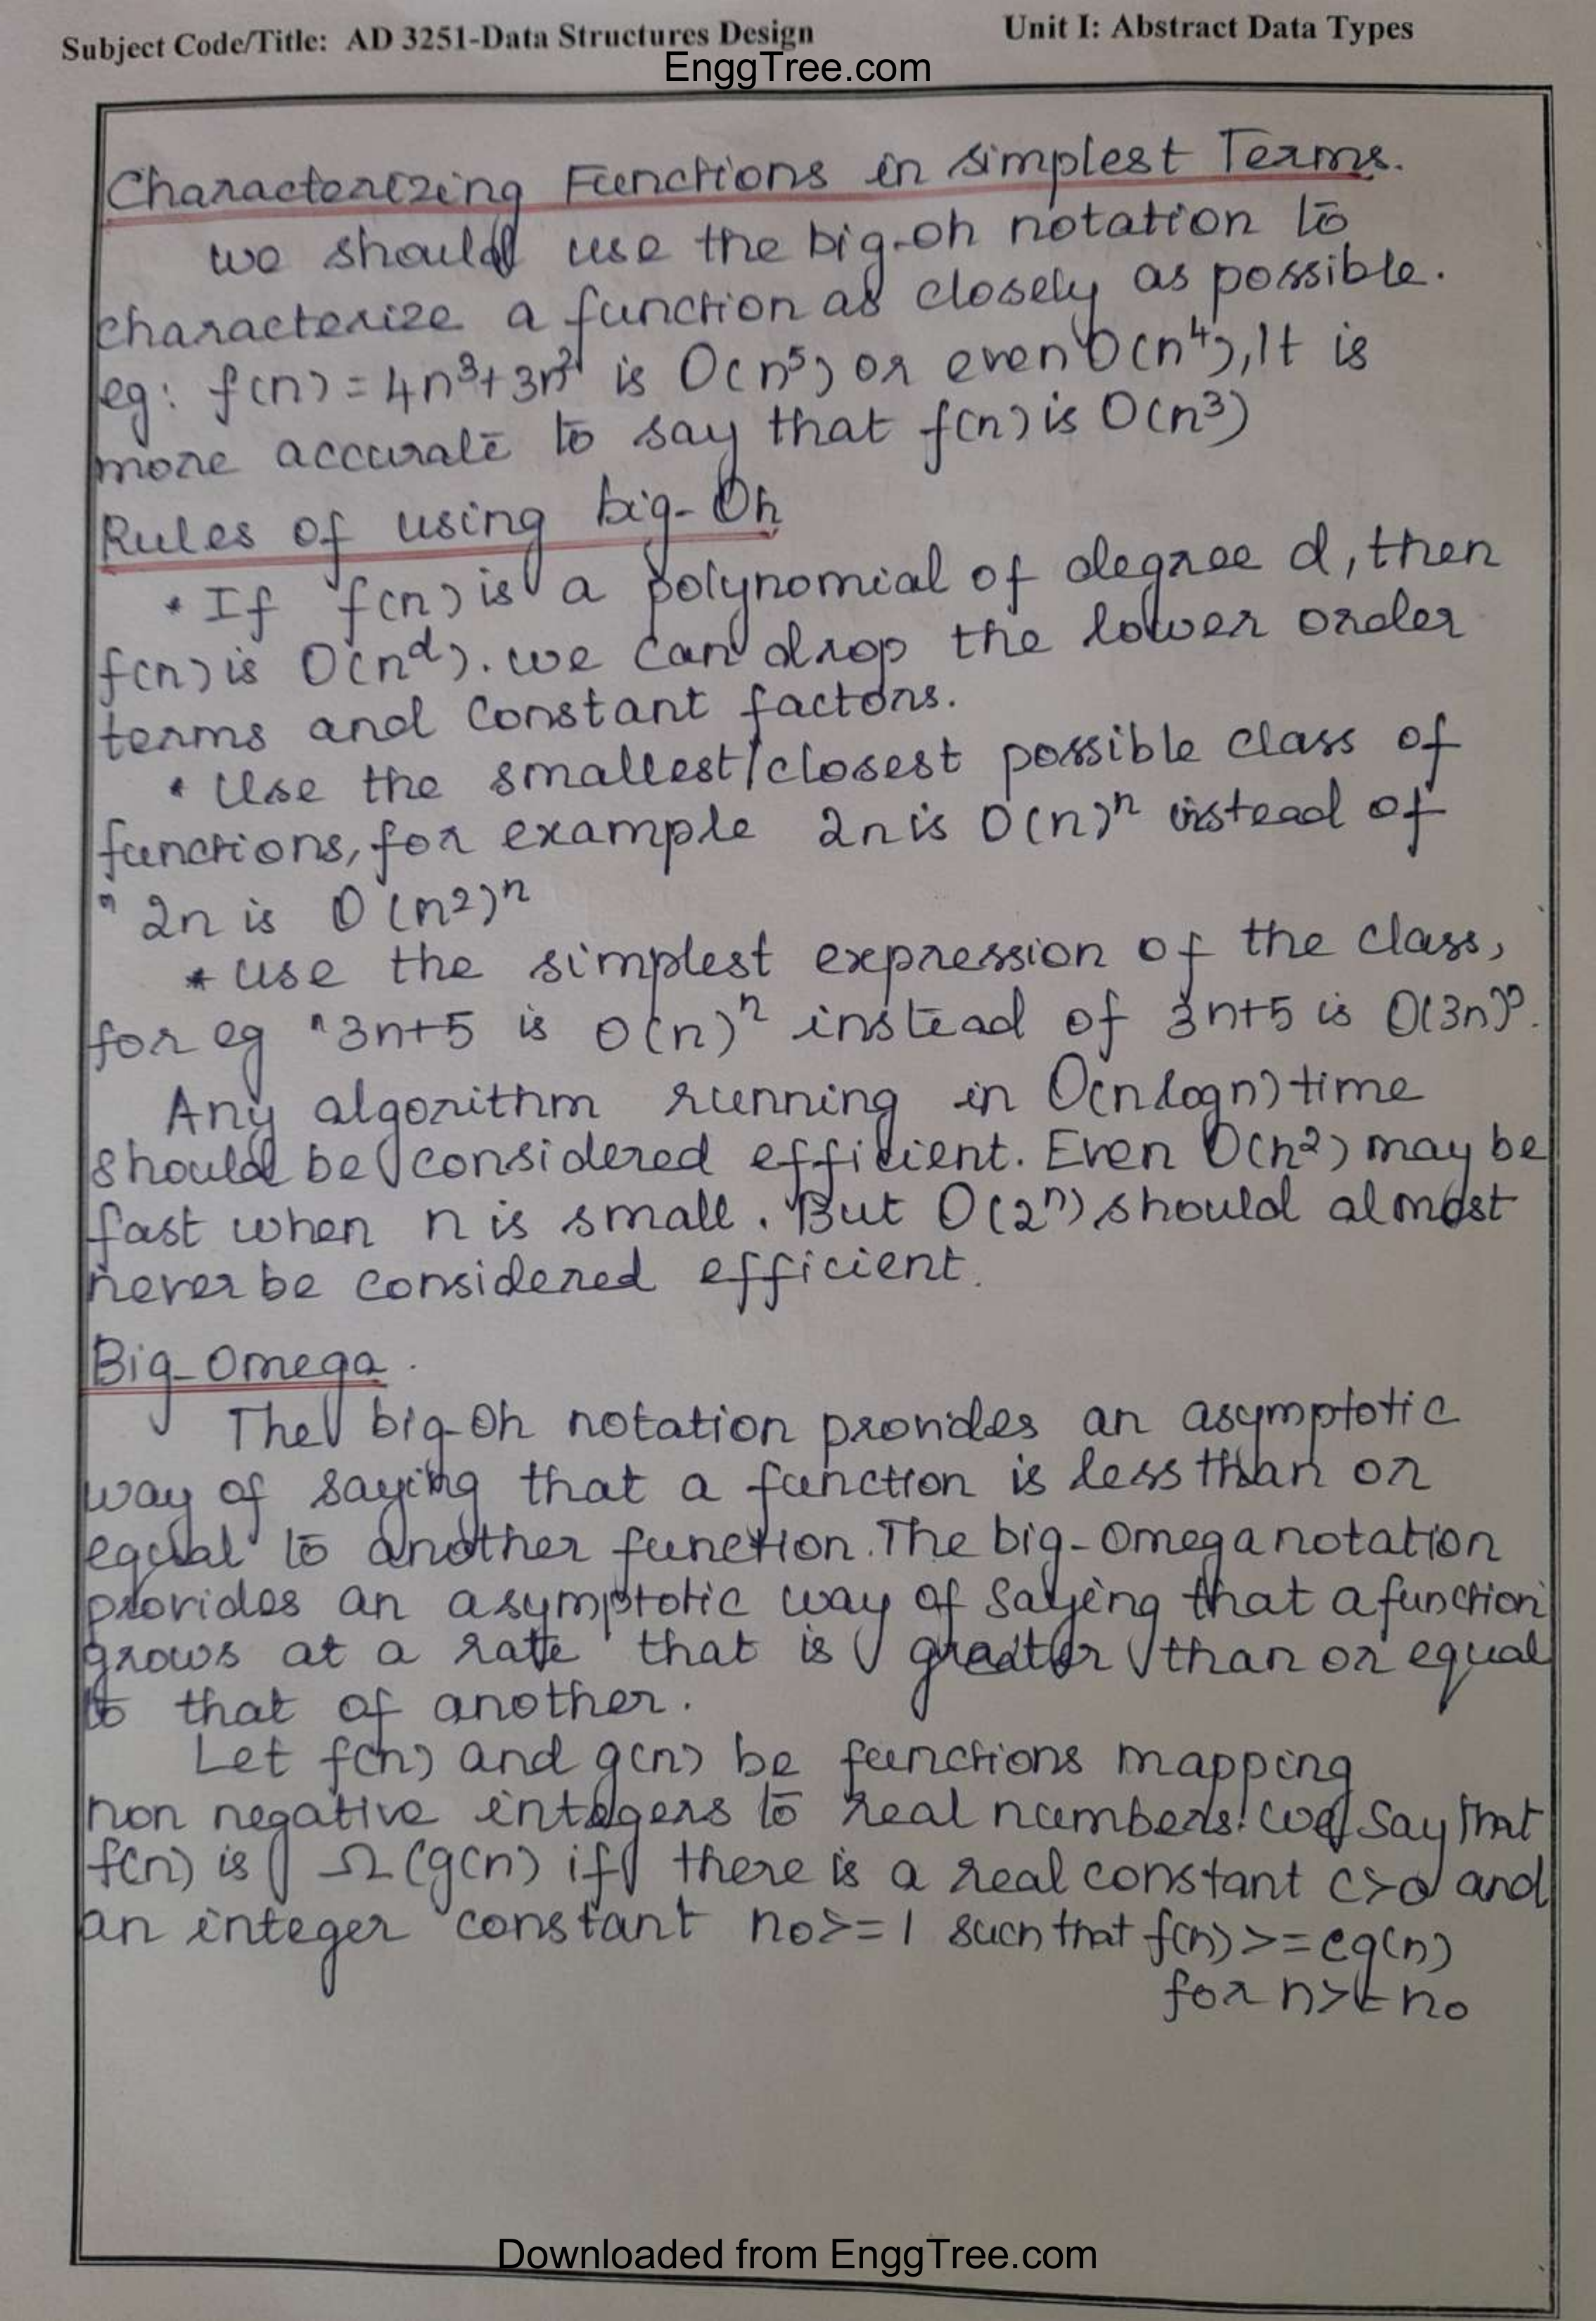 Subject Code/Title: AD 3251-Data Structures Design Unit I: Abstract Data Types
EnggTree.com
Characterizing Functions in simplest Terms.
we should use the big-oh notation to
characterize a function as closely as possible.
eg: f(n) = 4n³+3n² is O(n⁵) or even O(n⁴), It is
more accurate to say that f(n) is O(n³)
Rules of using big-Oh
• If f(n) is a polynomial of degree d, then
f(n) is O(nᵈ). we can drop the lower order
terms and constant factors.
• Use the smallest/closest possible class of
functions, for example 2n is O(n)ⁿ instead of
" 2n is O(n2)ⁿ
* use the simplest expression of the class,
for eg "3n+5 is O(n)ⁿ instead of 3n+5 is O(3n)ⁿ.
Any algorithm running in O(nlogn) time
should be considered efficient. Even O(n²) may be
fast when n is small. But O(2ⁿ) should almost
never be considered efficient.
Big-Omega.
The big-Oh notation provides an asymptotic
way of saying that a function is less than or
equal to another function. The big-Omega notation
provides an asymptotic way of saying that a function
grows at a rate that is greater than or equal
to that of another.
Let f(n) and g(n) be functions mapping
non negative integers to real numbers. we say that
f(n) is Ω(g(n) if there is a real constant c>0 and
an integer constant n₀>=1 such that f(n)>=cg(n)
for n>=n₀
Downloaded from EnggTree.com